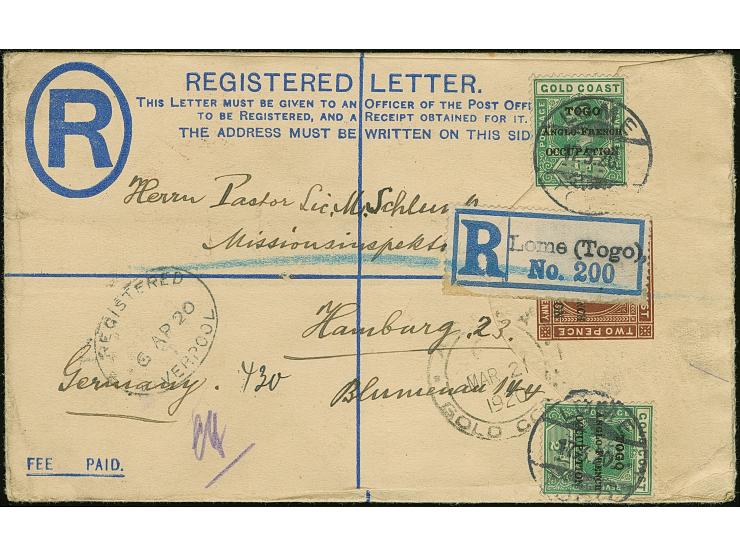 R
REGISTERED LETTER.
THIS LETTER MUST BE GIVEN TO AN OFFICER OF THE POST OFFI
TO BE REGISTERED, AND A RECEIPT OBTAINED FOR IT.
THE ADDRESS MUST BE WRITTEN ON THIS SID
GOLD COAST
TOGO
ANGLO-FRENCH
OCCUPATION
Herrn Pastor Lic. M. Schlun
Missionsinspekt
R
Lome (Togo),
No. 200
TWO PENCE
REGISTERED
6 AP 20
VERPOOL
Hamburg 23.
MAR 2
192
GOLD CO
Germany. 430
Blumenau
GOLD COAST
TOGO
ANGLO-FRENCH
OCCUPATION
FEE PAID.